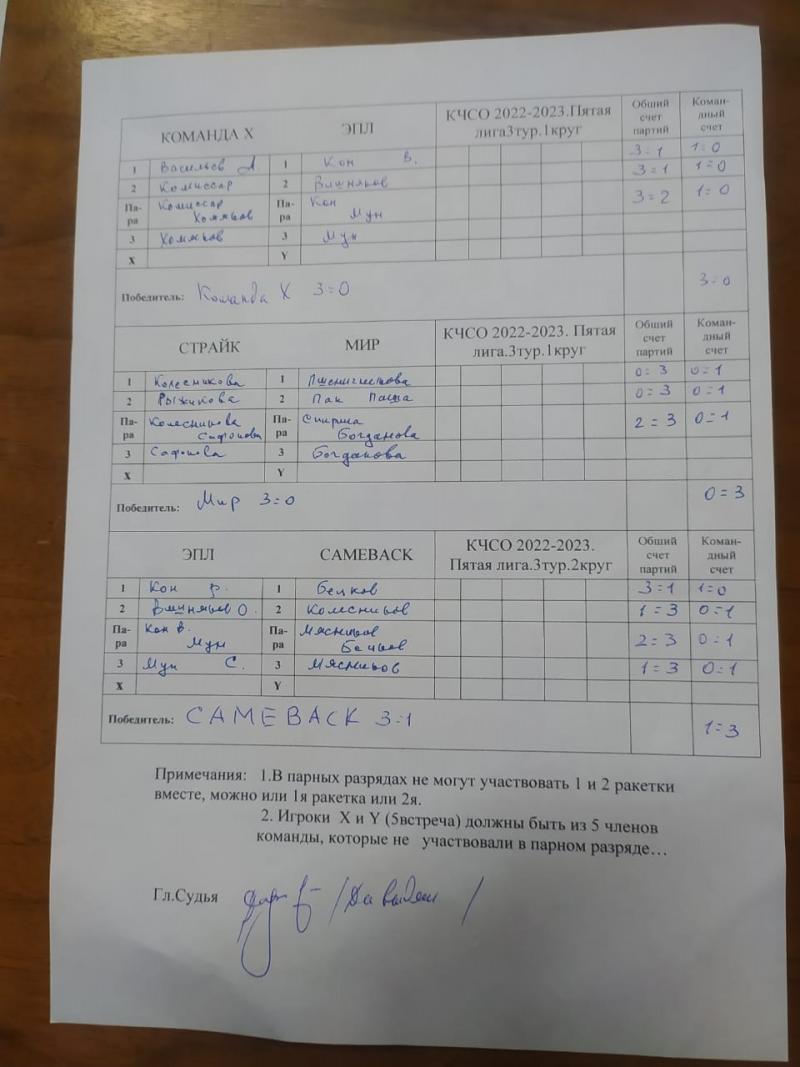 КОМАНДА X ЭПЛ КЧСО 2022-2023.Пятая лига3тур.1круг Общий счет партий Коман-дный счет
1 Васильев А 1 Кон В. 3=1 1=0
2 Комиссар 2 Вишняков 3=1 1=0
Па-ра Комиссар Хомяков Па-ра Кон Мун 3=2 1=0
3 Хомяков 3 Мун
X Y
Победитель: Команда X 3=0 3=0
СТРАЙК МИР КЧСО 2022-2023. Пятая лига.3тур.1круг Общий счет партий Коман-дный счет
1 Колесникова 1 0=3 0=1
2 Рыжикова 2 Пак Паша 0=3 0=1
Па-ра Колесникова Сафонова Па-ра Спирина Богданова 2=3 0=1
3 Сафонова 3 Богданова
X Y
Победитель: Мир 3=0 0=3
ЭПЛ CAMEBACK КЧСО 2022-2023. Пятая лига.3тур.2круг Общий счет партий Коман-дный счет
1 Кон В. 1 Бецков 3=1 1=0
2 Вишняков О. 2 Колесников 1=3 0=1
Па-ра Кон В. Мун Па-ра Мясников Бецков 2=3 0=1
3 Мун С. 3 Мясников 1=3 0=1
X Y
Победитель: CAMEBACK 3=1 1=3
Примечания: 1.В парных разрядах не могут участвовать 1 и 2 ракетки
вместе, можно или 1я ракетка или 2я.
2. Игроки X и Y (5встреча) должны быть из 5 членов
команды, которые не участвовали в парном разряде…
Гл.Судья